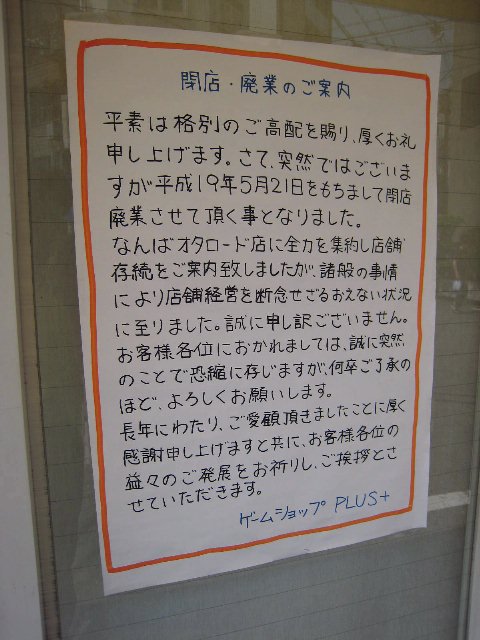 閉店・廃業のご案内
平素は格別のご高配を賜り、厚くお礼
申し上げます。さて、突然ではございま
すが平成19年5月21日をもちまして閉店
廃業させて頂く事となりました。
なんばオタロード店に全力を集約し店舗
存続をご案内致しましたが、諸般の事情
により店舗経営を断念せざるおえない状況
に至りました。誠に申し訳ございません。
お客様各位におかれましては、誠に突然
のことで恐縮に存じますが、何卒ご了承の
ほど、よろしくお願いします。
長年にわたり、ご愛顧頂きましたことに厚く
感謝申し上げますと共に、お客様各位の
益々のご発展をお祈りし、ご挨拶とさ
せていただきます。
ゲームショップ PLUS+